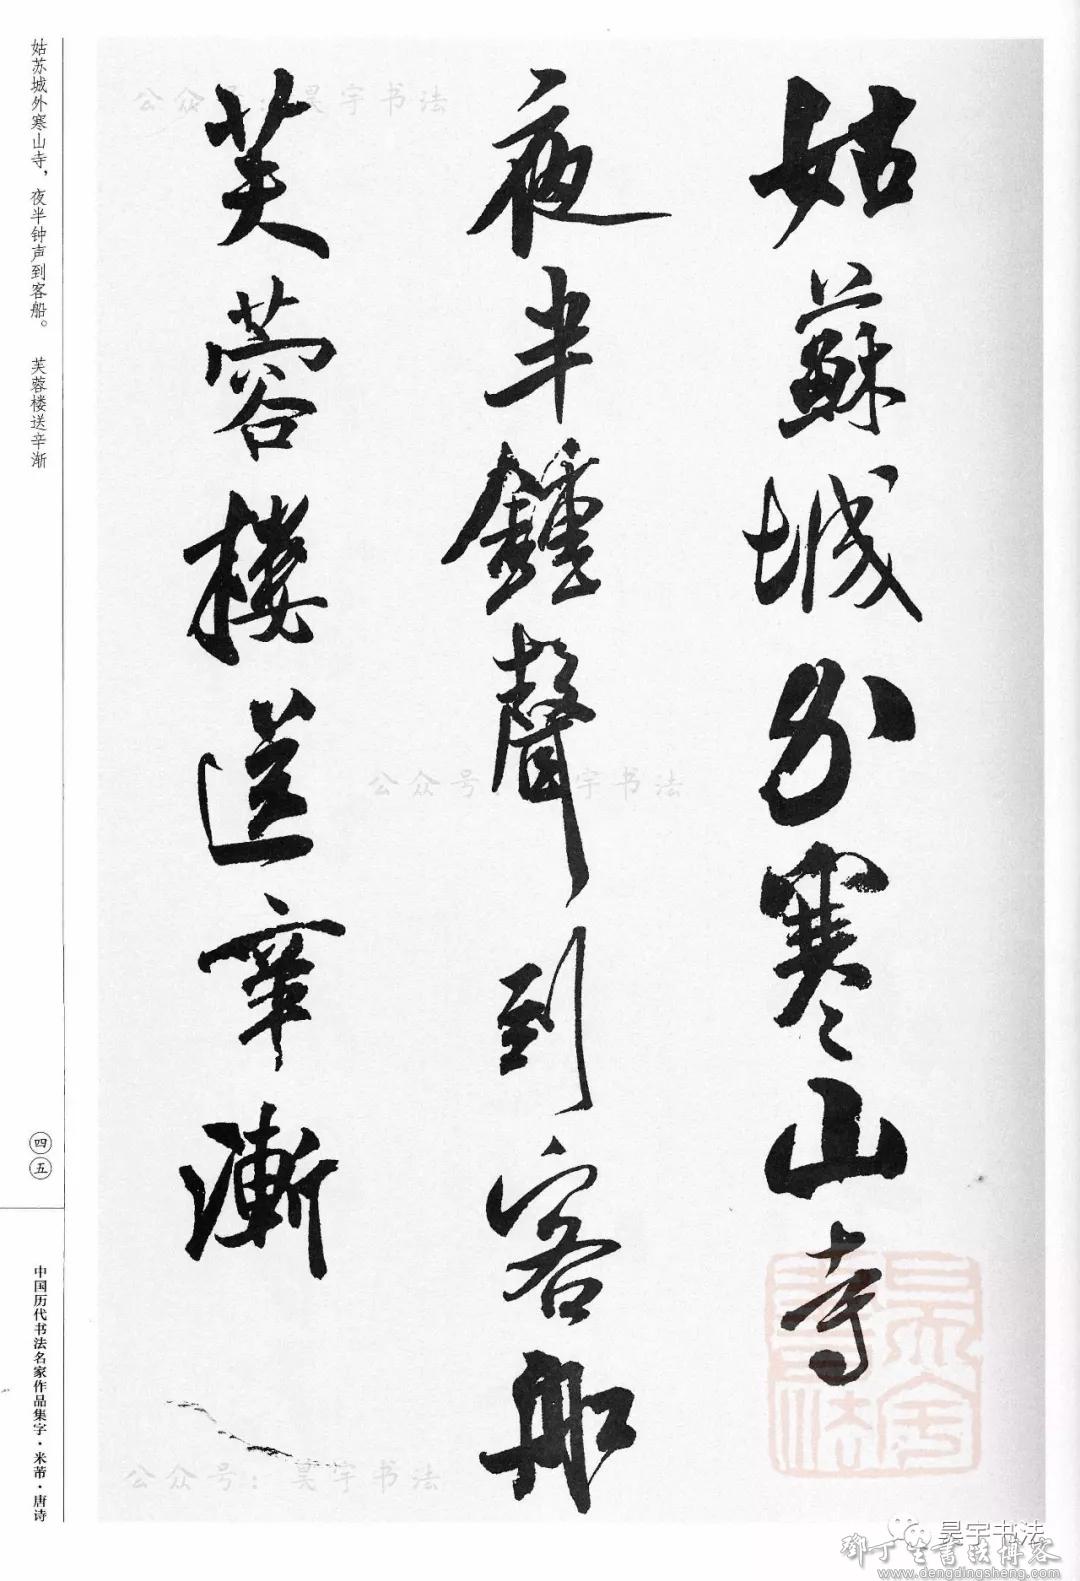 姑蘇城外寒山寺
夜半鍾聲到客船
芙蓉樓送辛漸
姑苏城外寒山寺，夜半钟声到客船。 芙蓉楼送辛渐
四五
中国历代书法名家作品集字·米芾·唐诗
公众号：昊宇书法
公众号：昊宇书法
公众号：昊宇书法
昊宇书法
昊宇书法
鄧丁生書法博客
www.dengdingsheng.com